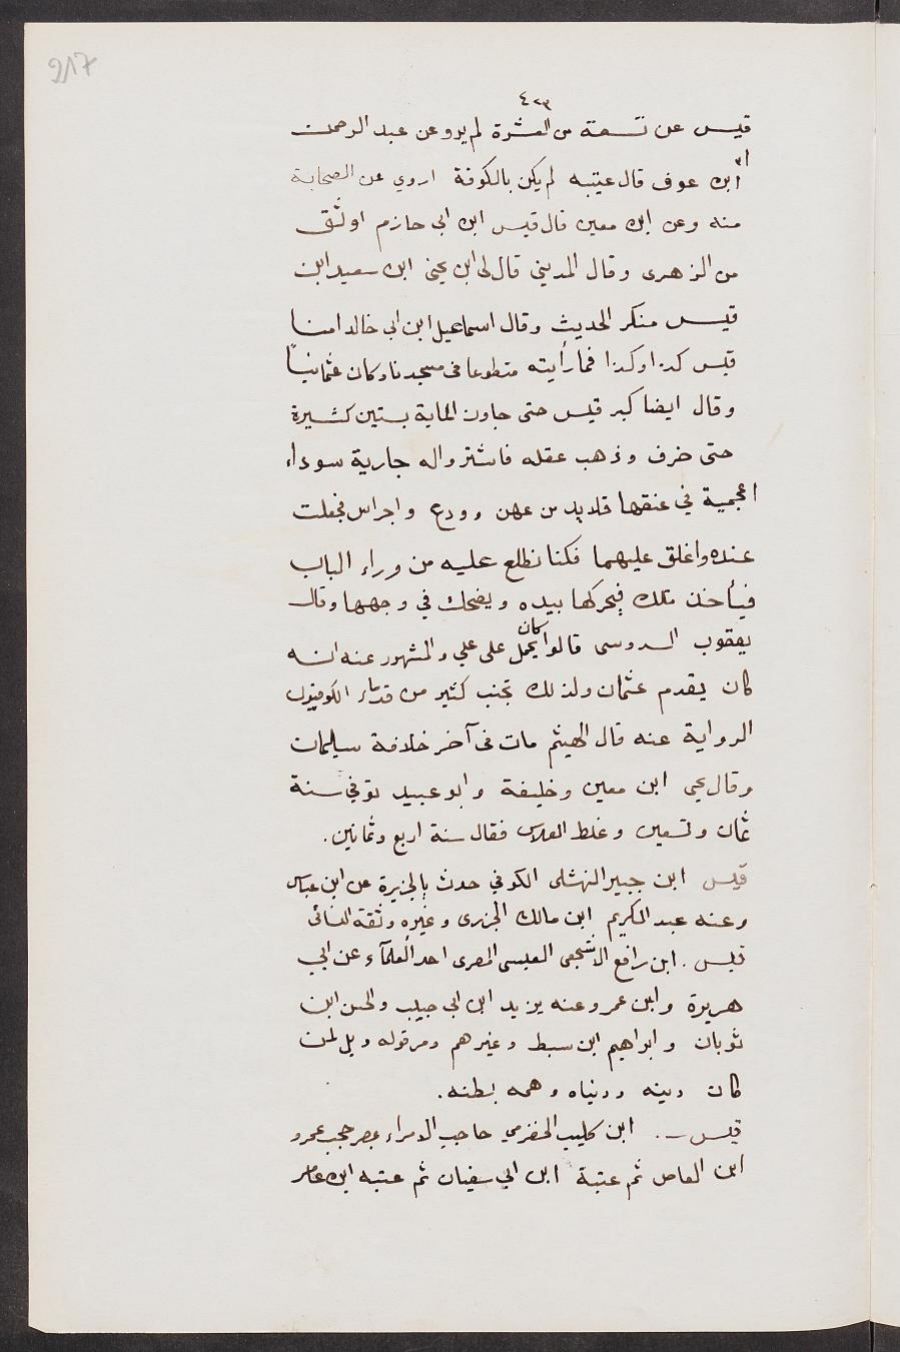 217
٤٢٣
قيس عن تسعة من العشرة لم يرو عن عبد الرحمن
ابن عوف قال عيتبه لم يكن بالكوفة اروي عن الصحابة
منه وعن ابن معين قال قيس ابن ابى حازم اوثق
من الزهرى وقال المدينى قال لى ابن يحيى ابن سعيد ابن
قيس منكر الحديث وقال اسماعيل ابن ابى خالد امنا
قيس كذا وكذا فما رأيته متطوعا فى مسجدنا وكان عثمانيًا
وقال ايضا كبر قيس حتى جاوز الماية بسنين كثيرة
حتى خرف وذهب عقله فاشتروا له جارية سوداء
اعجمية في عنقها قلايد من عهن وودع واجراس فجعلت
عنده واغلق عليهما فكنا نطلع عليه من وراء الباب
فيأخذ تلك فيحركها بيده ويضحك في وجهها وقال
يعقوب السدوسى قالوا كان يحمل على علي والمشهور عنه انه
كان يقدم عثمان ولذلك تجنب كثير من قدماء الكوفيون
الرواية عنه قال الهيثم مات فى آخر خلافة سليمان
وقال يحى ابن معين وخليفة وابو عبيد توفي سنة
ثمان وتسعين وغلط الفلاس فقال سنة اربع وثمانين.
قيس ابن جبير النهشلى الكوفي حدث بالجزيرة عن ابن عباس
وعنه عبد الكريم ابن مالك الجزرى وغيره وثقة النسائى
قيس. ابن رافع الاشجعى العبسى المصرى احد العلمآء عن ابي
هريرة وابن عمر وعنه يزيد ابن ابى حبيب والحسن ابن
ثوبان وابراهيم ابن سبط وغيرهم ومر قوله ويل لمن
كان دينه ودنياه وهمه بطنه.
قيس. ابن كليب الحضرمي حاجب الامراء بمصر حجب عمرو
ابن العاص ثم عتبة ابن ابي سفيان ثم عتبه ابن عامر